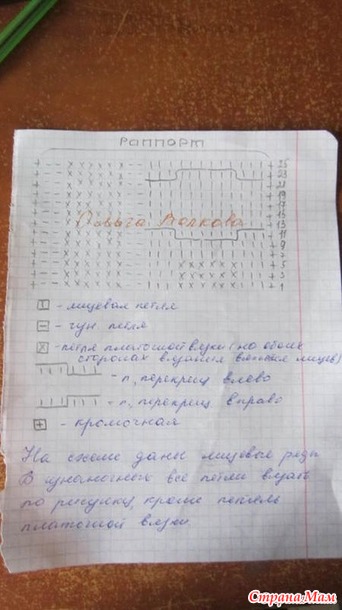 Раппорт
25
23
21
19
17
15
13
Ольга Волкова
11
9
7
5
3
1
I - лицевая петля
— - изн петля
X - петля платочной вязки (на обоих
сторонах вяжется лицев)
- п, перекрещ влево
- п, перекрещ вправо
+ - кромочная
На схеме даны лицевые ряды
В изнаночных все петли вязать
по рисунку, кроме петель
платочной вязки.
СтранаМам